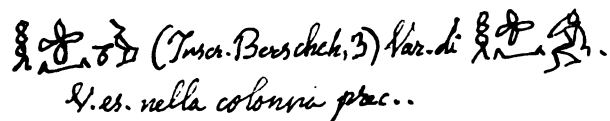 (Inscr. Berscheh, 3) Var. di
V. es. nella colonna prec..